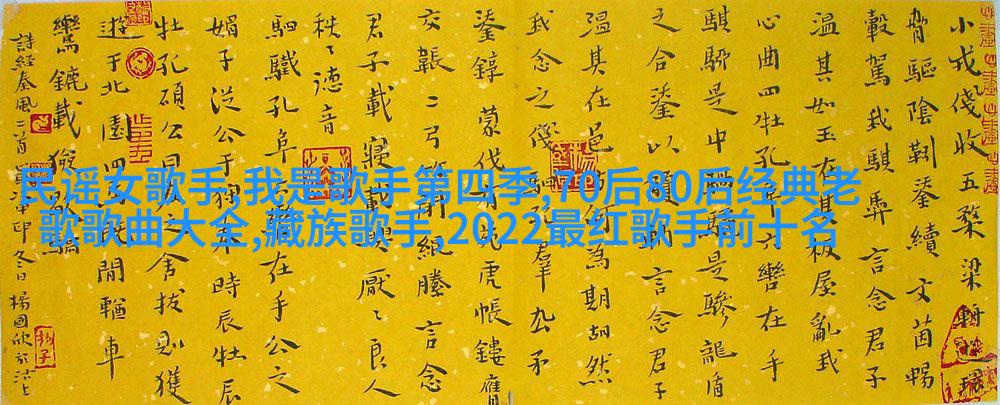 民谣女歌手,我是歌手第四季,70后80后经典老
歌歌曲大全,藏族歌手,2022最红歌手前十名
小戎俴收五楘梁輈
脅驅陰靷鋈續文茵暢
轂駕我騏馵言念君子
温其如玉在其板屋亂我
心曲四牡孔六轡在手
騏駵是中是驂龍盾
之合鋈以言念君子
温其在邑何為期胡然
我念之俴孔羣厹矛
鋈錞蒙伐有虎帳鏤膺
交韔二弓緄縢言念
君子載寢載厭〻良人
秩〻德音
駟驖孔阜在手公之
媚子從公于狩時辰牡辰
牡孔碩公曰之舍拔則獲
遊于北園四閒輶車
鸞鑣載獫
詩經秦風二首冬日楊國欣